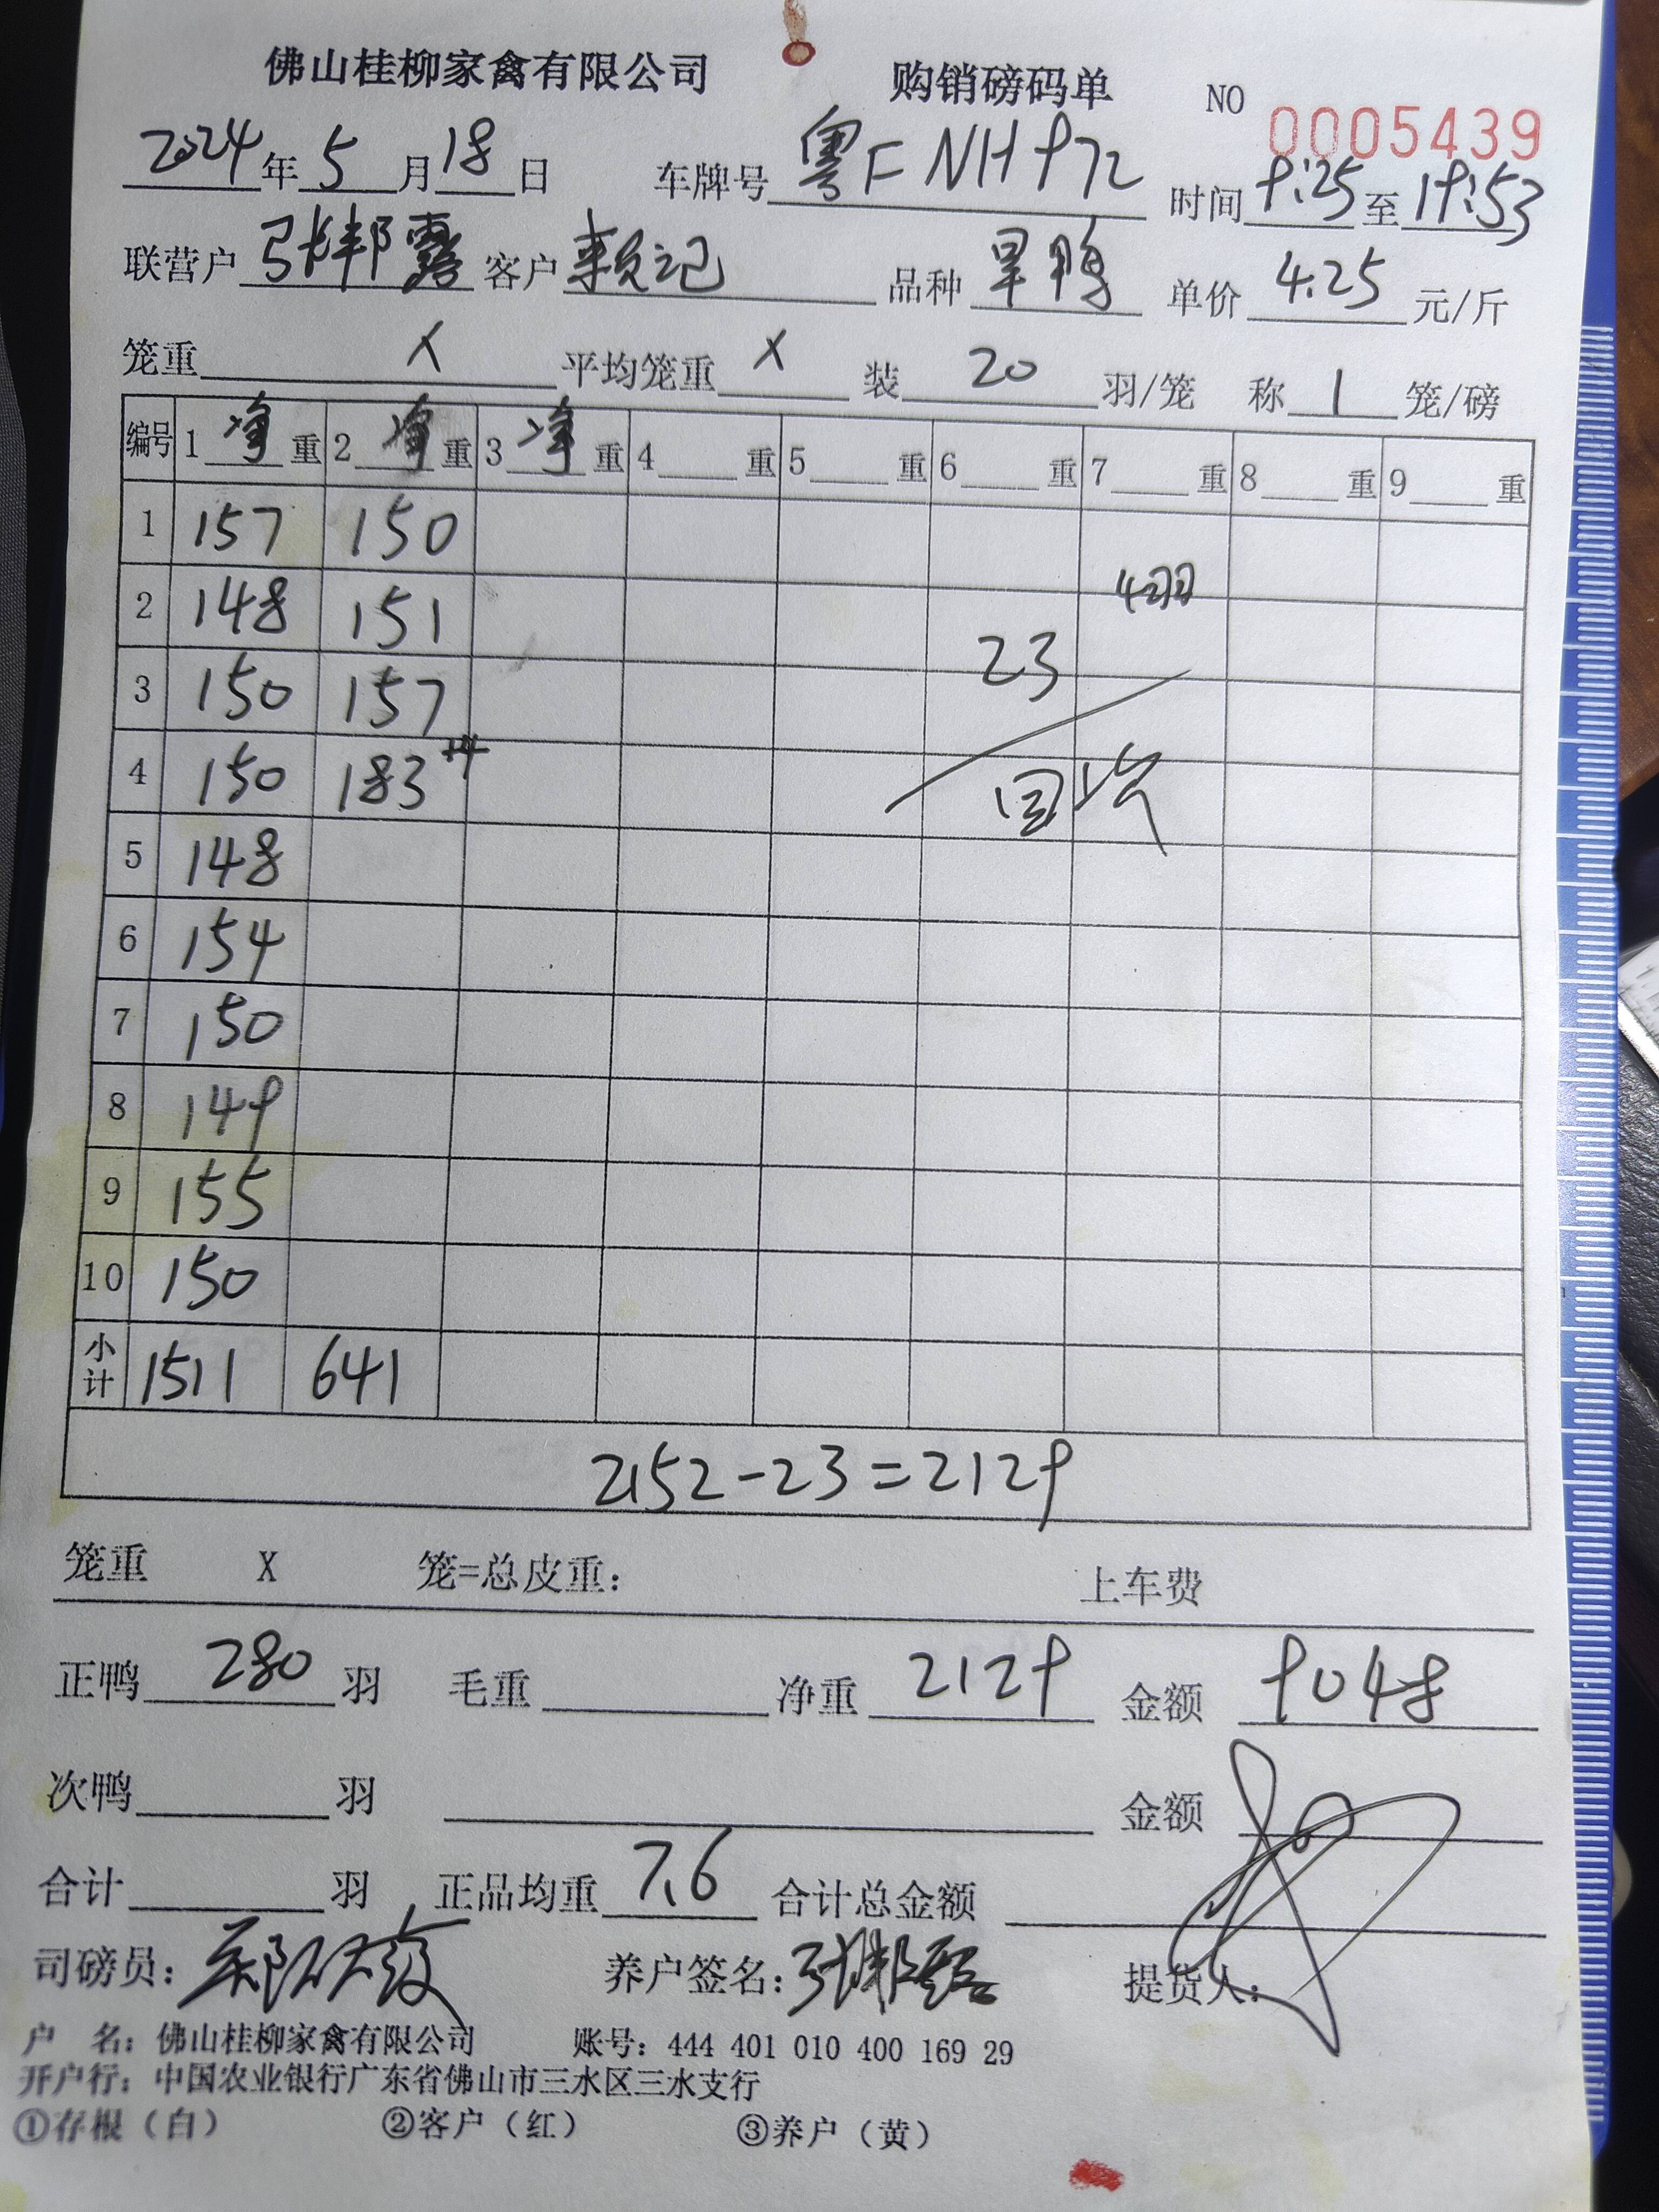 佛山桂柳家禽有限公司 购销磅码单 NO 0005439
2024年5月18日 车牌号 粤F NH972 时间 9:25 至 19:53
联营户 张邦露 客户 赖记 品种 旱鸭 单价 4.25 元/斤
笼重 X 平均笼重 X 装 20 羽/笼 称 1 笼/磅
编号 1 净 重 2 净 重 3 净 重 4 重 5 重 6 重 7 重 8 重 9 重
1 157 150
2 148 151 4羽
3 150 157 23
4 150 183 +4 回次
5 148
6 154
7 150
8 149
9 155
10 150
小计 1511 641
2152-23=2129
笼重 X 笼=总皮重: 上车费
正鸭 280 羽 毛重 净重 2129 金额 9048
次鸭 羽 金额
合计 羽 正品均重 7.6 合计总金额
司磅员: 养户签名: 张邦露 提货人:
户 名: 佛山桂柳家禽有限公司 账号: 444 401 010 400 169 29
开户行: 中国农业银行广东省佛山市三水区三水支行
①存根（白） ②客户（红） ③养户（黄）